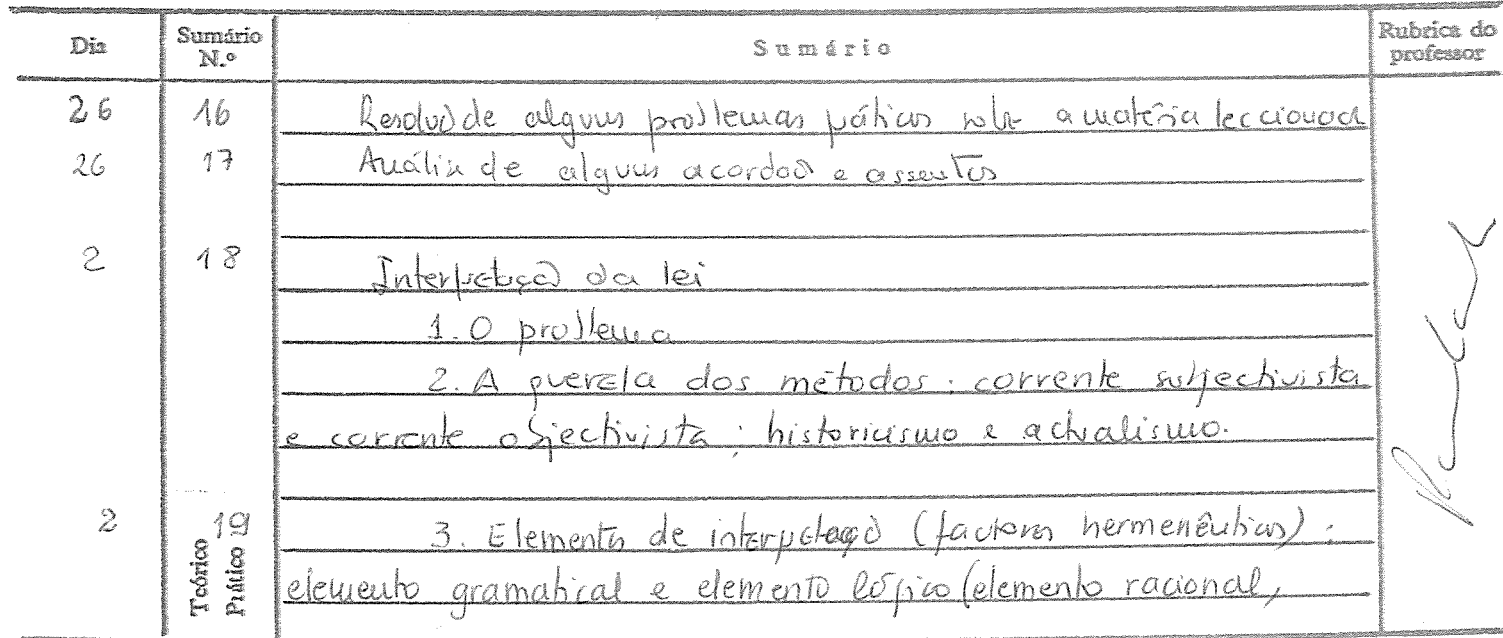 Dia Sumário N.º Sumário Rubrica do professor
26 16 Resolução de alguns problemas práticos sobre a matéria leccionada
26 17 Análise de alguns acordãos e assentos
2 18 Interpretação da lei
1. O problema
2. A querela dos métodos: corrente subjectivista
e corrente objectivista; historicismo e actualismo.
2 19 3. Elementos de interpretação (factores hermenêuticos):
Teórico Prático elemento gramatical e elemento lógico (elemento racional,